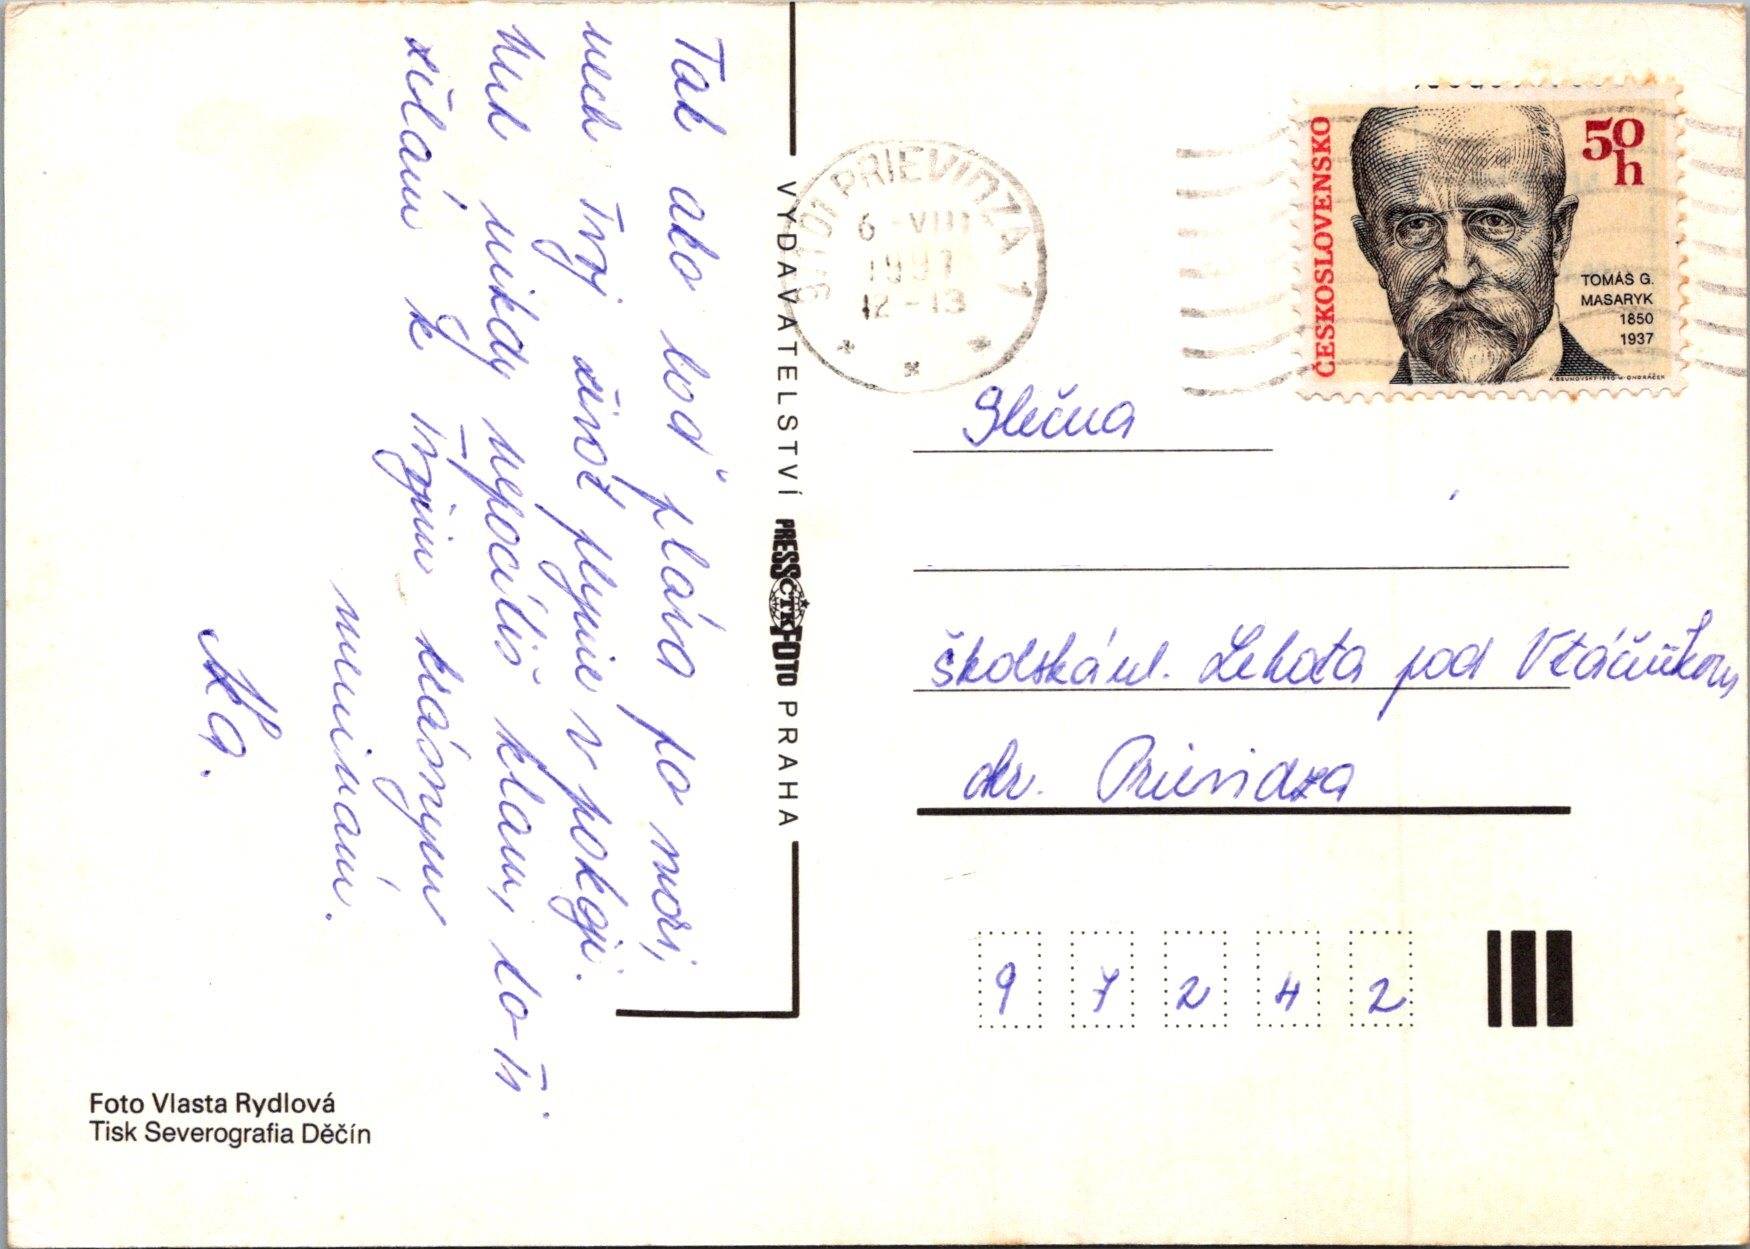 Tak ako loď pláva po mori,
nech Tvoj život plynie v pokoji.
Nech nikdy nepocítiš klam, to Ti
želám k Tvojim krásnym
meninám.
VYDAVATELSTVÍ PRESSFOTO PRAHA
ČTK
PRIEVIDZA 1
6.-VIII
1991
12-13
ČESKOSLOVENSKO
50
h
TOMÁŠ G.
MASARYK
1850
1937
A. BRUNOVSKÝ 1990 M. ONDRÁČEK
Slečna
školská ul. Lehota pod Vtáčnikom
okr. Prievidza
9 7 2 4 2
Foto Vlasta Rydlová
Tisk Severografia Děčín